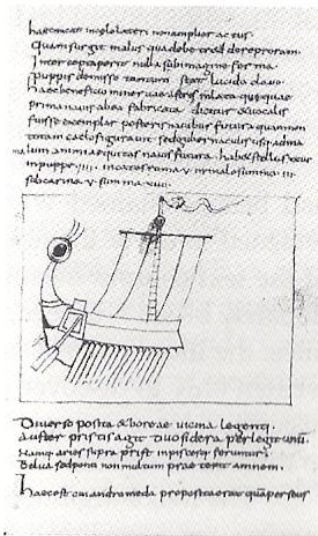 haec micat nonamplius actus
Quam surgit malus qua
perit nulla subimagine forma
puppis demisso tantum stat lucida clavo
haec beneficio minervae astris inlata
prima navis abea fabricata dicitur &vocalis
fuisse exemplar posteris navibus futura quam non
totam caelo figuravit sed gubernaculis usq. adma
lum navis futura. habet stellas
inpuppe .IIII. .V. in malo summo .III.
sub carina .V. summa XVII.
Diverso posita &boreae vicina legenti.
Auster pristis agit duo sidera perlegit unū.
Namq; aries supra inpiscesq; feruntur
Belua sed ponti non multum prae terit amnem.
haec est cui andromeda proposita erat quā perseus